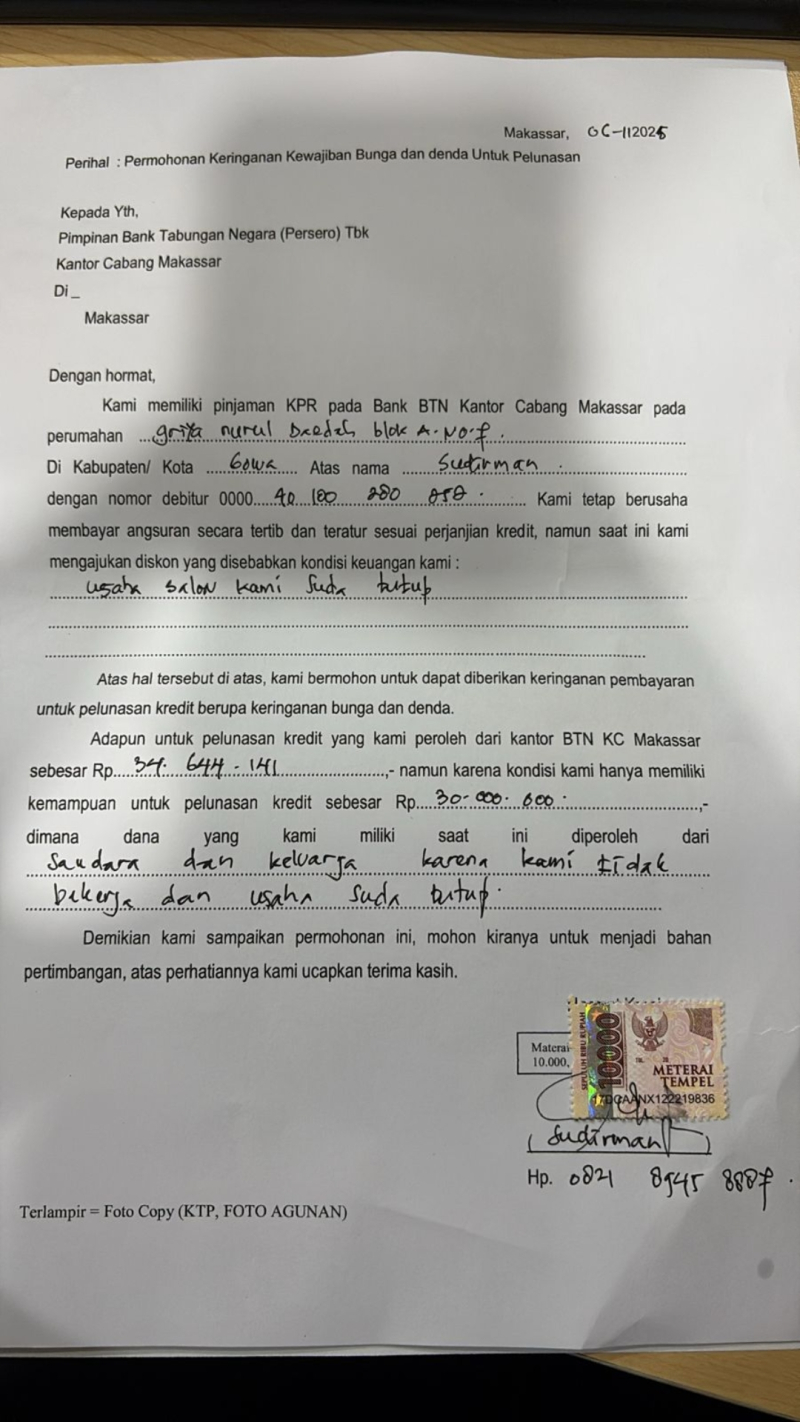 Makassar, 06-112025
Perihal : Permohonan Keringanan Kewajiban Bunga dan denda Untuk Pelunasan
Kepada Yth,
Pimpinan Bank Tabungan Negara (Persero) Tbk
Kantor Cabang Makassar
Di_
Makassar
Dengan hormat,
Kami memiliki pinjaman KPR pada Bank BTN Kantor Cabang Makassar pada
perumahan ...griya nurul blok A. No.f.
Di Kabupaten/ Kota ......Gowa...... Atas nama ........Sudirman
dengan nomor debitur 0000.....40 100 280 050. Kami tetap berusaha
membayar angsuran secara tertib dan teratur sesuai perjanjian kredit, namun saat ini kami
mengajukan diskon yang disebabkan kondisi keuangan kami :
usaha salon kami suda tutup
Atas hal tersebut di atas, kami bermohon untuk dapat diberikan keringanan pembayaran
untuk pelunasan kredit berupa keringanan bunga dan denda.
Adapun untuk pelunasan kredit yang kami peroleh dari kantor BTN KC Makassar
sebesar Rp.....34. 644 - 141........................,- namun karena kondisi kami hanya memiliki
kemampuan untuk pelunasan kredit sebesar Rp....30-000.000.............................,-
dimana dana yang kami miliki saat ini diperoleh dari
Saudara dan keluarga karena kami tidak
bekerja dan usaha suda tutup.
Demikian kami sampaikan permohonan ini, mohon kiranya untuk menjadi bahan
pertimbangan, atas perhatiannya kami ucapkan terima kasih.
Materai
10.000,
SEPULUH RIBU RUPIAH
10000
METERAI
TEMPEL
ANX122219836
(Sudirman)
Hp. 0821 8945 888f.
Terlampir = Foto Copy (KTP, FOTO AGUNAN)